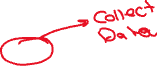 Collect
Data